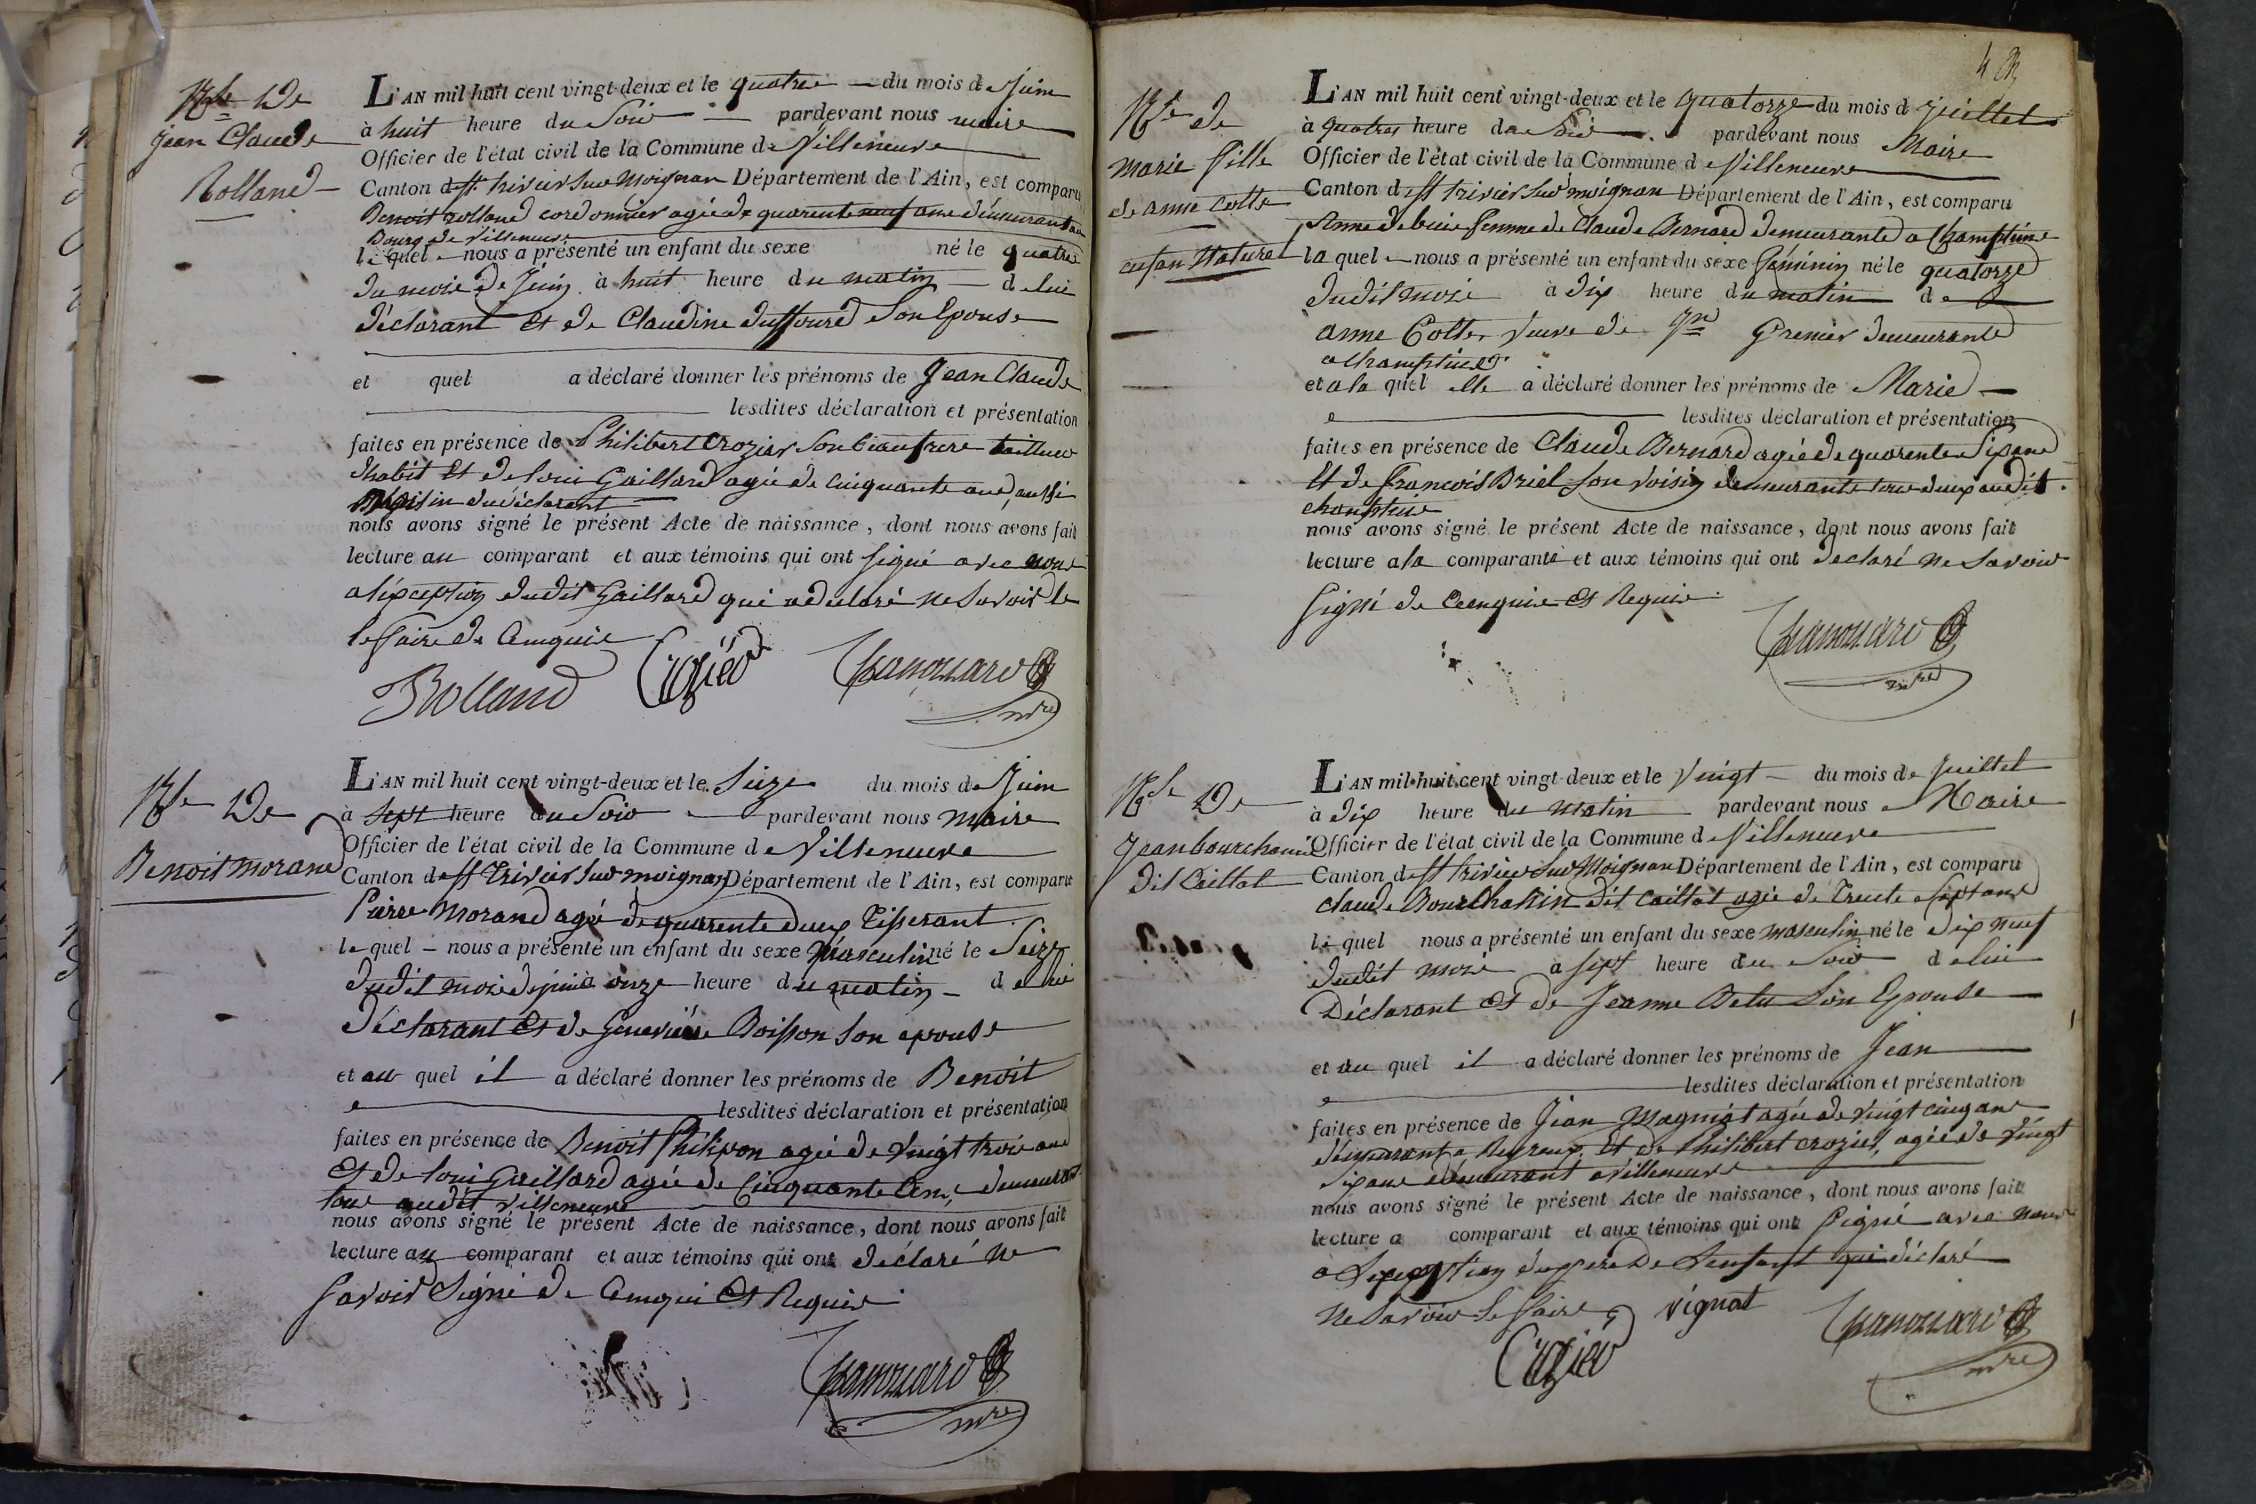 Nce De
jean Claude
Rolland
L'AN mil huit cent vingt-deux et le quatre du mois de Juin
à huit heure du Soir pardevant nous maire
Officier de l'état civil de la Commune de Villeneuve
Canton de St trivier Sur Moignan Département de l'Ain, est comparu
Benoit rolland cordonnier agée de quarente neuf ans demeurant au
Bourg de Villeneuve
le quel nous a présenté un enfant du sexe né le quatre
du mois de Juin à huit heure du matin de lui
déclarant et de Claudine duffoured Son Epouse
et quel a déclaré donner les prénoms de Jean Claude
lesdites déclaration et présentation
faites en présence de Philibert Crozier Son beaufrere tailleur
dhabit Et de loui Gaillard agée de cinquante ans, aussi
Voisin du déclarant
nous avons signé le présent Acte de naissance, dont nous avons fait
lecture au comparant et aux témoins qui ont signé avec nous
a léxception dudit Gaillard qui a déclaré ne Savoir le
le faire de Cenquis
Rolland Crozier Chanouard
mre
Nce De
Benoit morand
L'AN mil huit cent vingt-deux et le Sèize du mois de Juin
à Sept heure du Soir pardevant nous maire
Officier de l'état civil de la Commune de Villeneuve
Canton de St Trivier Sur moignan Département de l'Ain, est comparu
Pierre Morand agé de quarente deux Tisserant
le quel nous a présenté un enfant du sexe Masculin né le Seize
dudit mois de juin à onze heure du matin de lui
déclarant Et de Genevieve Boisson Son epouse
et au quel il a déclaré donner les prénoms de Benoit
lesdites déclaration et présentation
faites en présence de Benoit Philipon agée de Vingt trois ans
Et de loui Gaillard agée de Cinquante demeurant
tous audit Villeneuve
nous avons signé le présent Acte de naissance, dont nous avons fait
lecture au comparant et aux témoins qui ont déclaré ne
Savoir Signé de Cenqui Et Requis
Chanouard
mre
4
Nce de
marie fille
de anne Cotte
enfan Naturel
L'AN mil huit cent vingt-deux et le quatorze du mois de juillet
à quatres heure du Soir pardevant nous Maire
Officier de l'état civil de la Commune de Villeneuve
Canton de St trivier Sur moignan Département de l'Ain, est comparu
Anne debuire femme de Claude Bernard demeurante a Champtein
la quel nous a présenté un enfant du sexe féminin né le quatorze
dudit mois à dix heure du matin de
anne Cotte, veuve de Jn Grenier demeurante
a Champtein
et a la quel elle a déclaré donner les prénoms de Marie
lesdites déclaration et présentation
faites en présence de Claude Bernard agée de quarente Six ans
Et de francois Briel Son Voisin demeurante tous deux audit
champtein
nous avons signé le présent Acte de naissance, dont nous avons fait
lecture a la comparante et aux témoins qui ont declaré ne Savoir
Signé de Cenquis et Requis
Chanouard
mre
Nce De
Jean bourchanin
dit Caillat
L'AN mil huit cent vingt-deux et le Vingt du mois de Juillet
à dix heure du matin pardevant nous Maire
Officier de l'état civil de la Commune de Villeneuve
Canton de St trivier Sur Moignan Département de l'Ain, est comparu
claude Bourchanin dit Caillat agée de Trente Sept ans
le quel nous a présenté un enfant du sexe masculin né le dix neuf
dudit mois à sept heure du Soir de lui
Déclarant Et de Jeanne Betu Son Epouse
et au quel il a déclaré donner les prénoms de Jean
lesdites déclaration et présentation
faites en présence de Jean agée de Vingt cinq ans
demeurant a Et de Philibert crozier, agée de Vingt
Six ans demeurant a Villeneuve
nous avons signé le présent Acte de naissance, dont nous avons fait
lecture a comparant et aux témoins qui ont Signé avec nous
a Lexception du pere de Lenfant qui déclaré
ne Savoir le faire vignat
Crozier Chanouard
mre